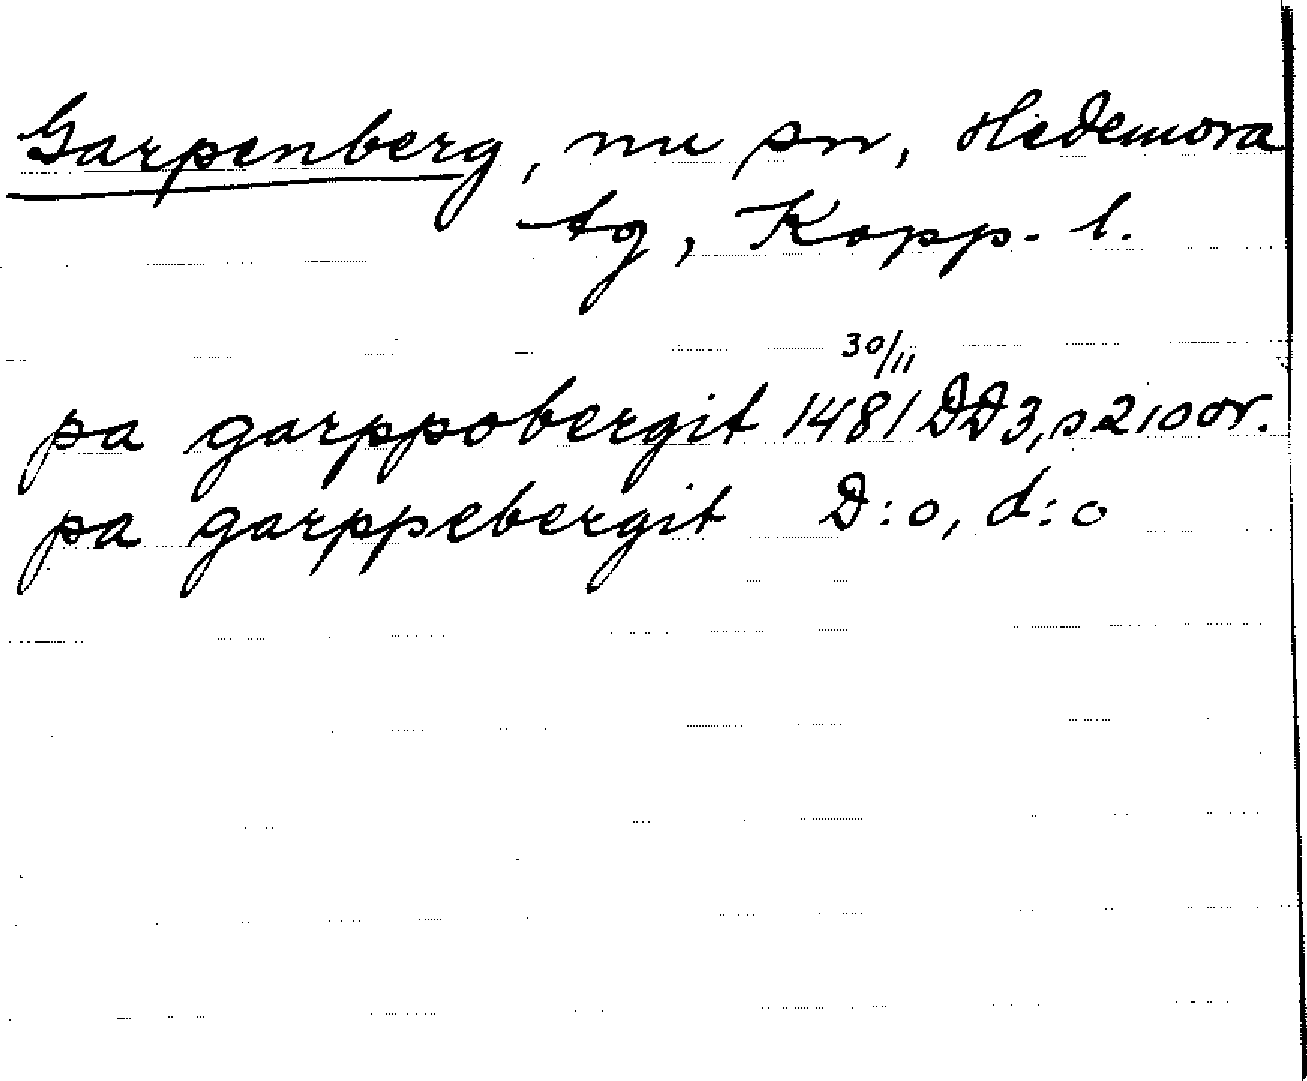 Garpenberg, nu sn, Hedemora
tg, Kopp. l.
30/11
pa garppobergit 1481 DD3, s 210 or.
pa garppebergit D:o, d:o